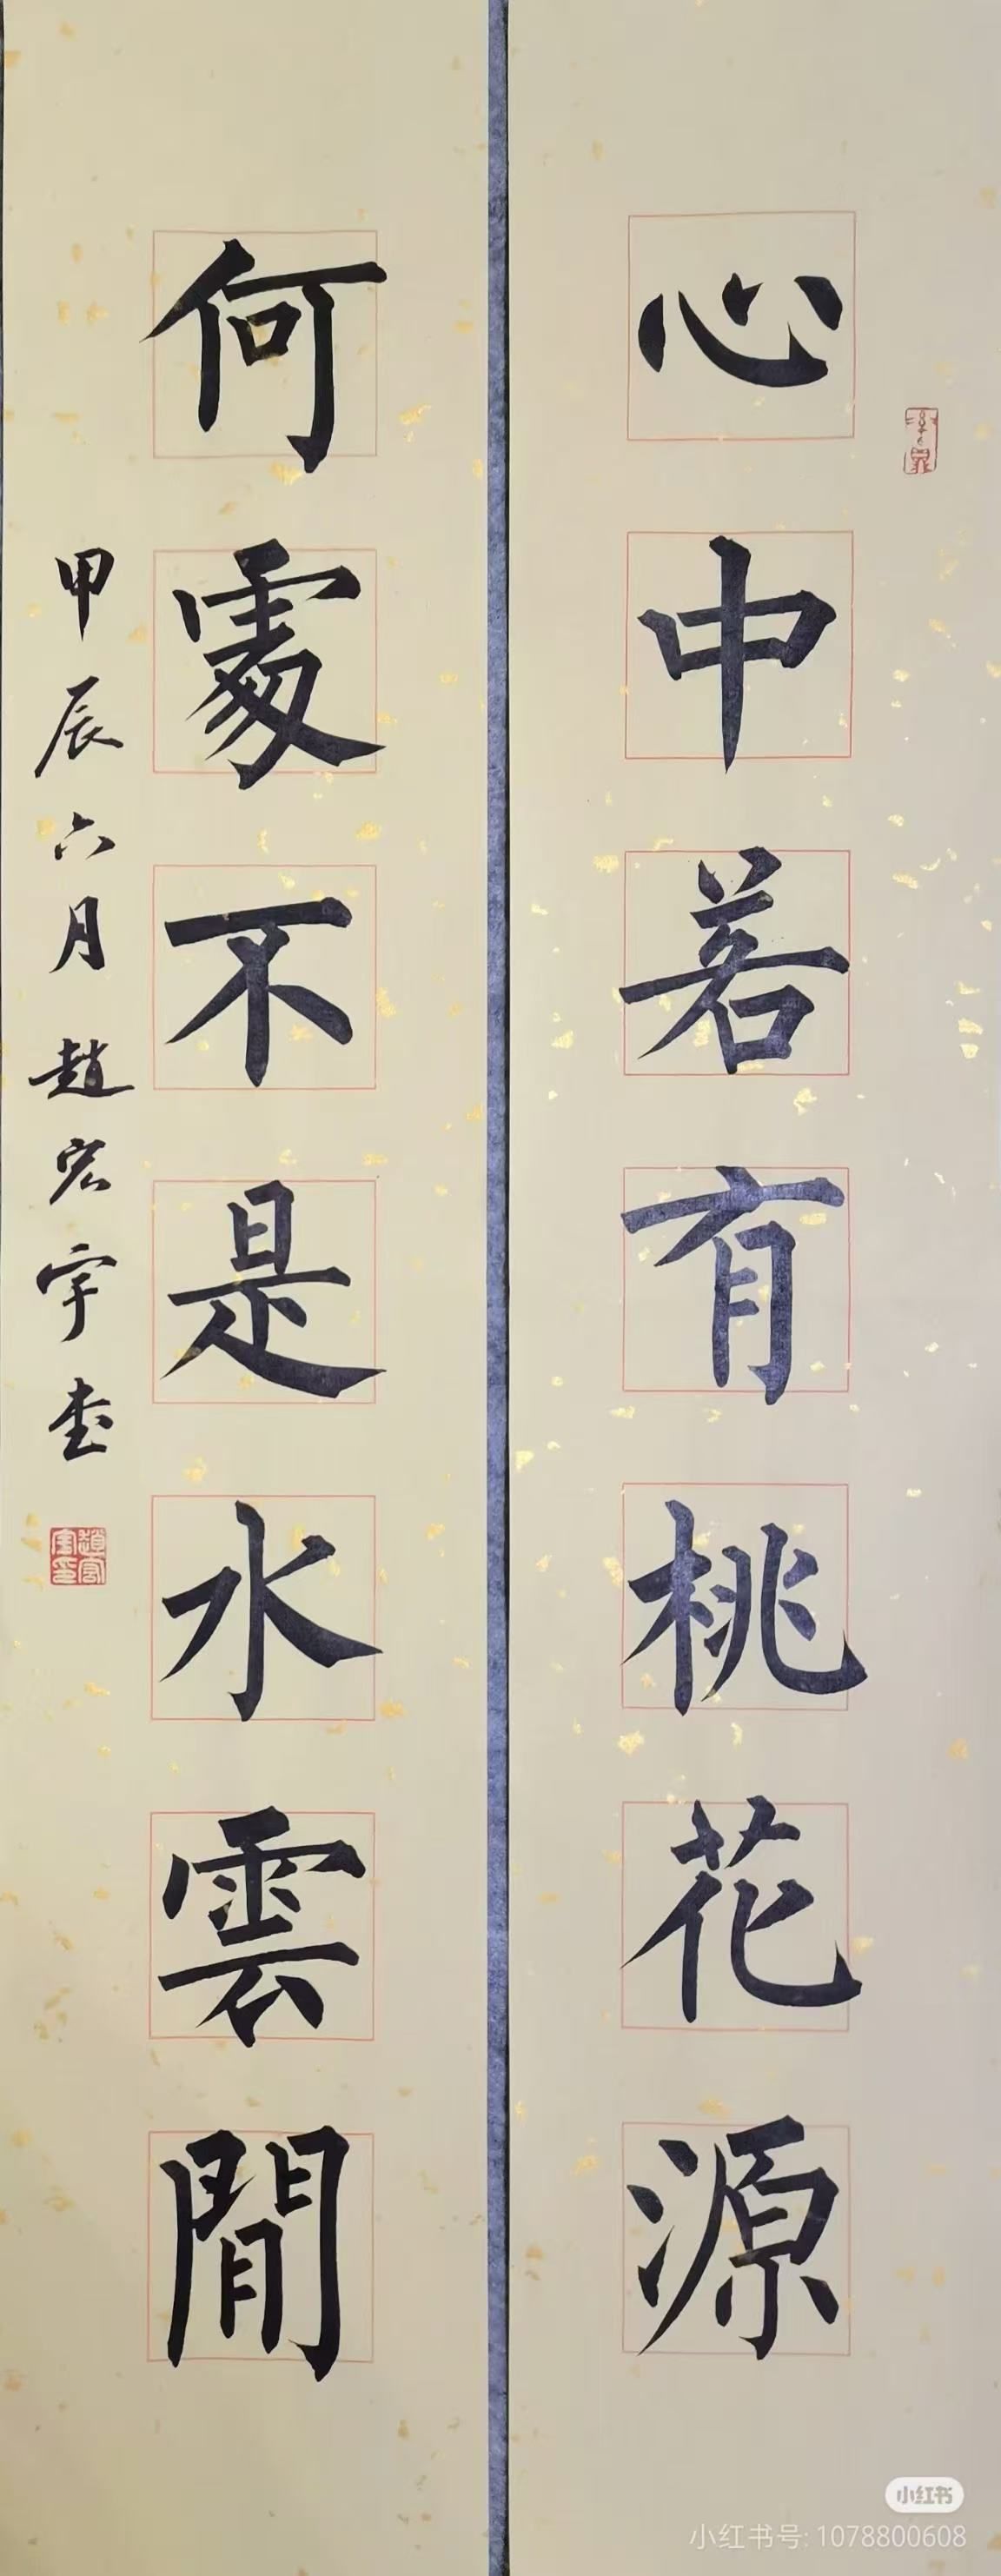 心中若有桃花源
何處不是水雲間
甲辰六月趙宏宇書
小红书
小红书号: 1078800608